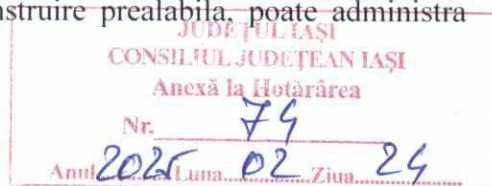 nstruire prealabila, poate administra
JUDEȚUL IAȘI
CONSILIUL JUDEȚEAN IAȘI
Anexă la Hotărârea
Nr. 74
Anul 2025 Luna 02 Ziua 24